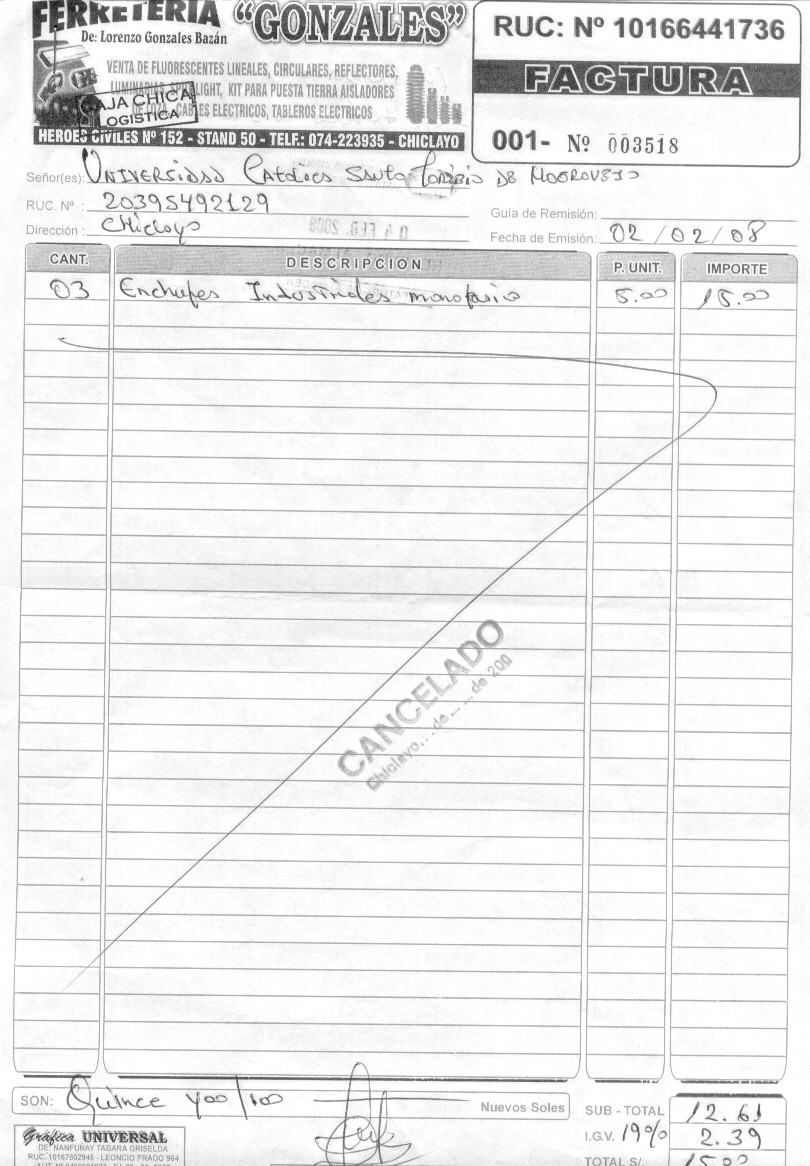 FERRETERIA "GONZALES"
De: Lorenzo Gonzales Bazán
VENTA DE FLUORESCENTES LINEALES, CIRCULARES, REFLECTORES,
LUMINARIAS, LIGHT, KIT PARA PUESTA TIERRA AISLADORES
CABLES ELECTRICOS, TABLEROS ELECTRICOS
CAJA CHICA
LOGISTICA
HEROES CIVILES Nº 152 - STAND 50 - TELF.: 074-223935 - CHICLAYO
RUC: Nº 10166441736
FACTURA
001- Nº 003518
Señor(es): Universidad Catolica Santo Toribio de Mogrovejo
RUC. Nº : 20395492129
Dirección : Chiclayo
Guía de Remisión:
Fecha de Emisión: 02 / 02 / 08
CANT. DESCRIPCION P. UNIT. IMPORTE
03 Enchufes Industriales monofasico 5.00 15.00
CANCELADO
Chiclayo...de......de 200
SON: Quince y 00/100 Nuevos Soles
SUB - TOTAL 12.61
I.G.V. 19% 2.39
TOTAL S/. 15.00
Gráfica UNIVERSAL
DE: NANFUÑAY TABARA GRISELDA
RUC. 10167802945 - LEONCIO PRADO 964